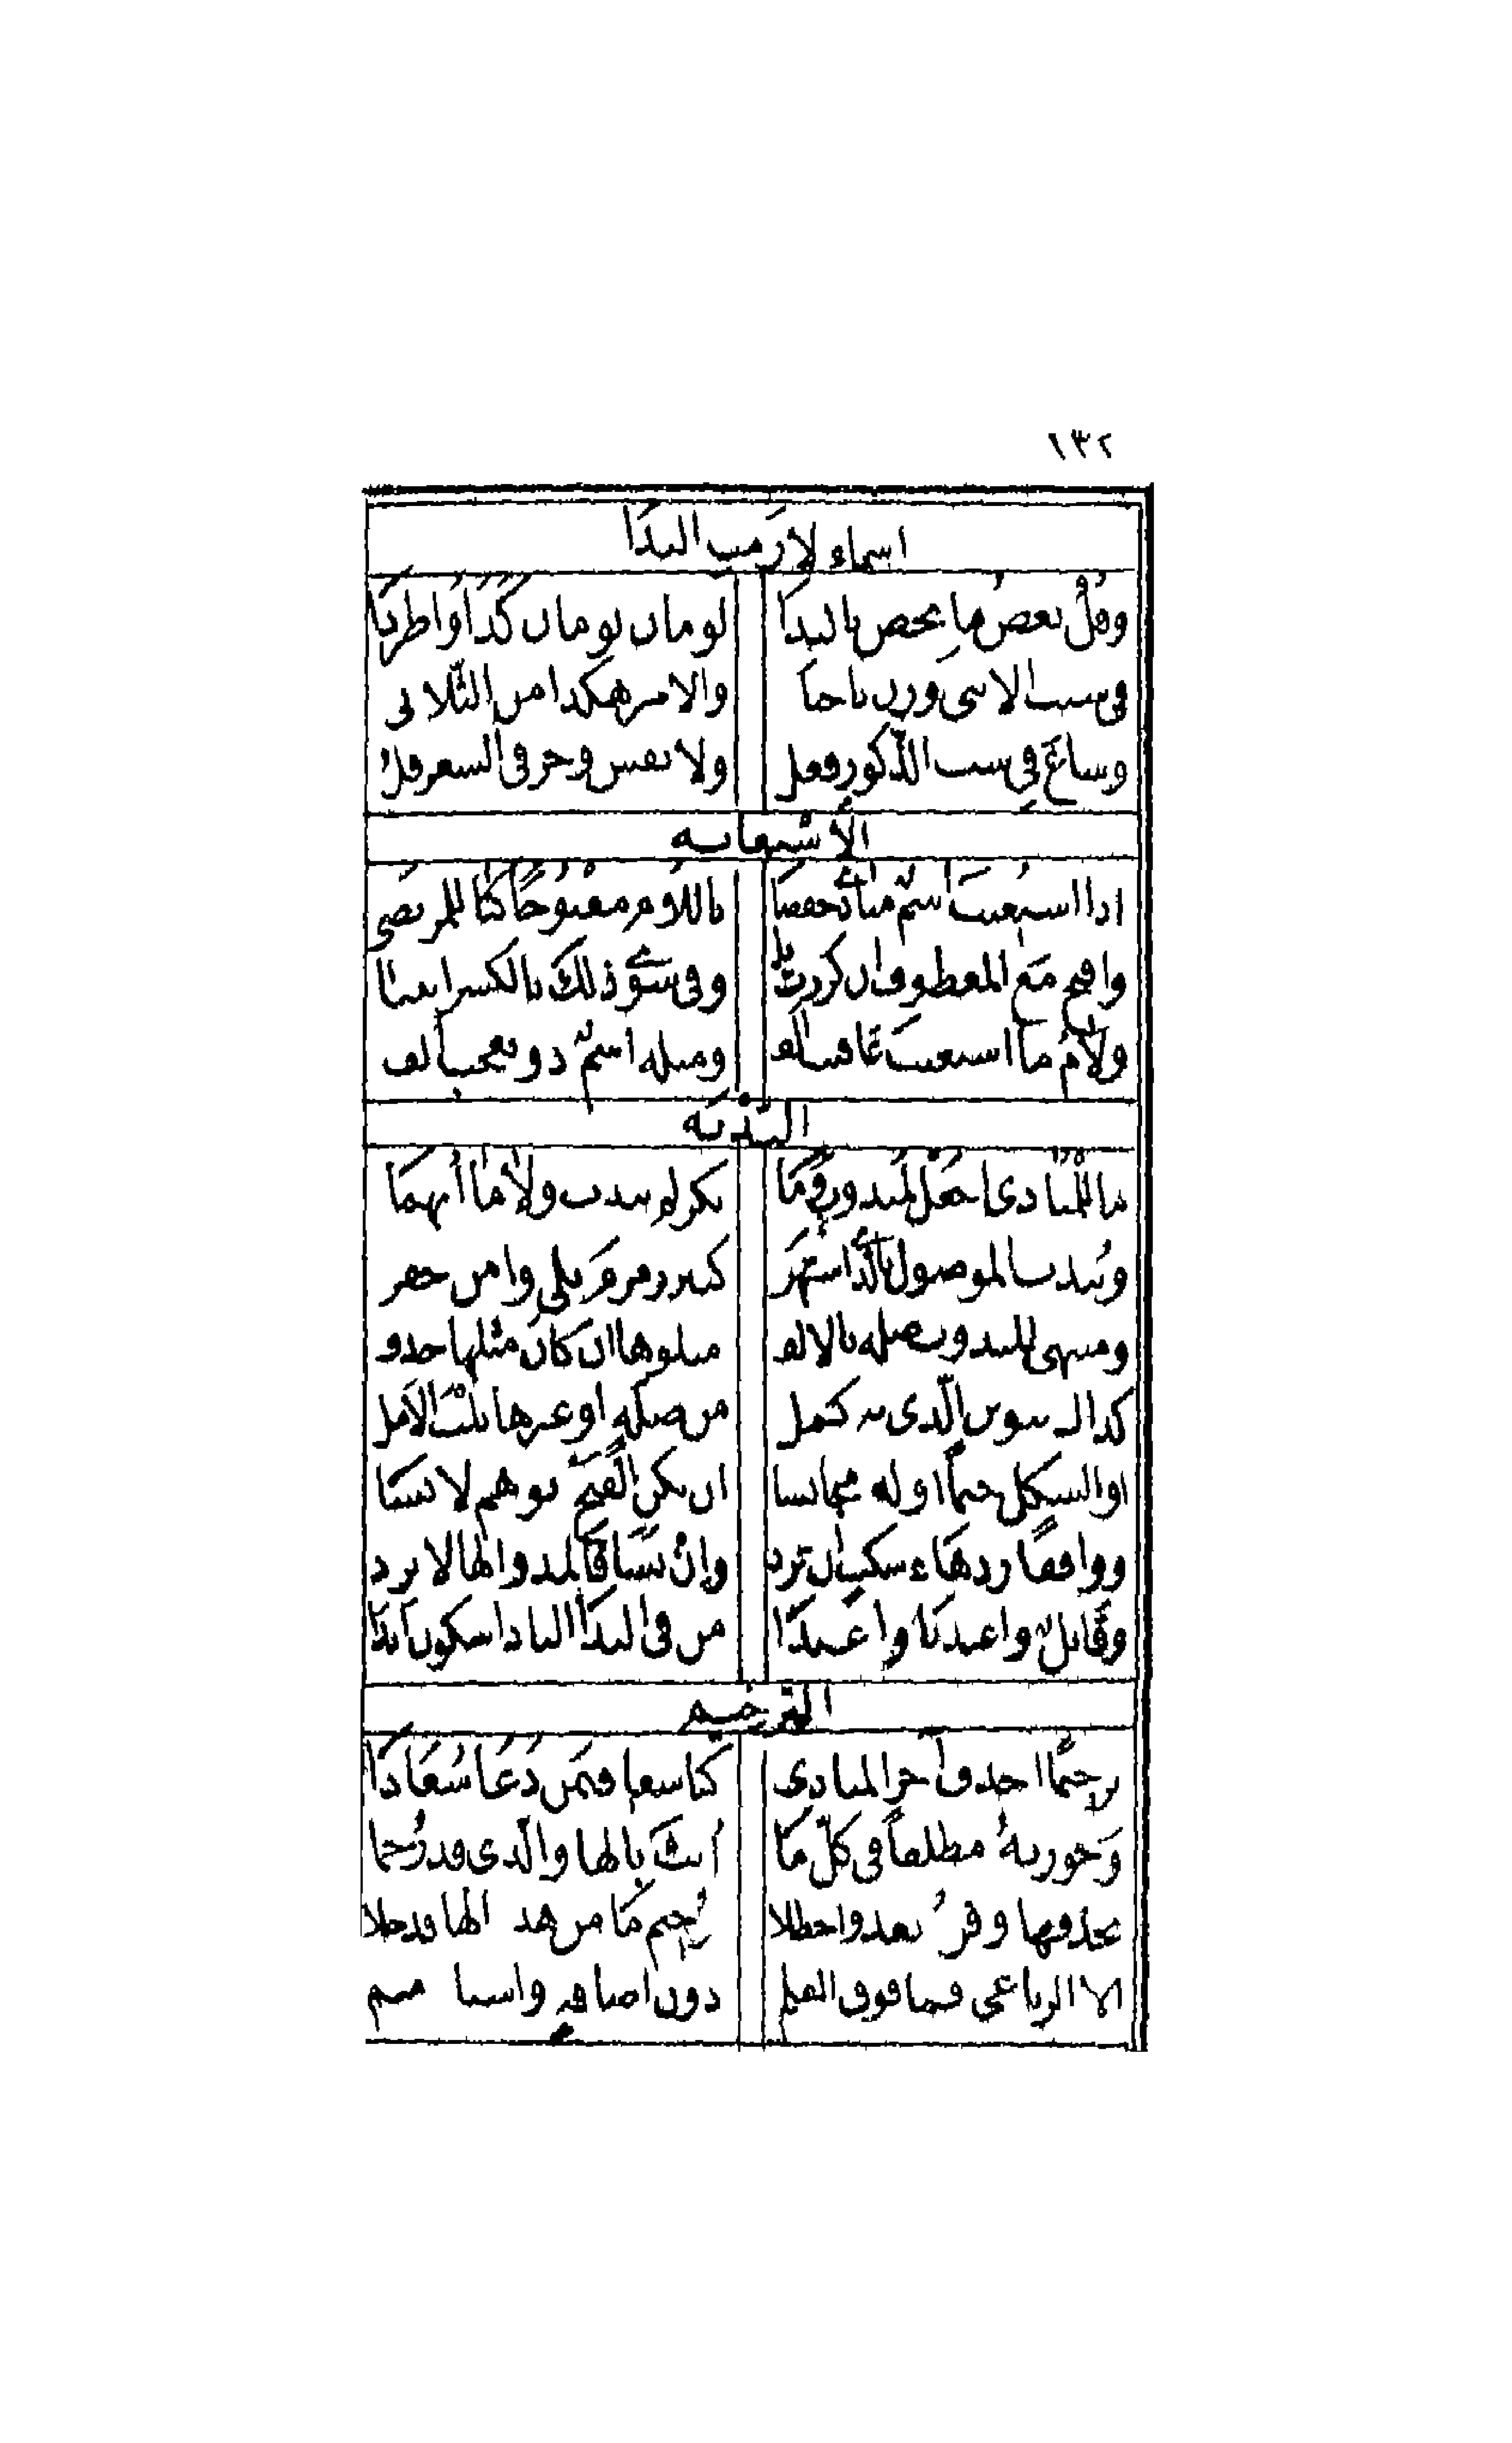 ١٣٢
اسماء لازمت الندا
وفل بعض ما يخص بالندا لومان نومان كذا واطردا
في سب الانثى وزن يا خباث والامر هكذا من الثلاثى
وشاع في سب الذكور فعل ولا تقس وجر في الشعر فل
الاستغاثه
اذا استغيث اسم منادى خفضا باللام مفتوحا كيا للمرتضى
وافتح مع المعطوف ان كررت يا وفى سوى ذلك بالكسر ايتيا
ولام ما استغيث عاقبت الف ومثله اسم ذو تعجب الف
الندبه
ما للمنادى اجعل لمندوب وما نكر لم يندب ولا ما ابهما
ويندب الموصول بالذى اشتهر كبئر زمزم يلى وا من حفر
ومنتهى المندوب صله بالالف متلوها ان كان مثلها حذف
كذاك تنوين الذى به كمل من صلة او غيرها نلت الامل
والشكل حتما اوله مجانسا ان يكن الفتح بوهم لابسا
وواقفا زد هاء سكت ان ترد وإن تشا فالمد والها لا تزد
وقائل واعبديا واعبدا من فى الندا اليا ذا سكون ابدا
الترخيم
ترخيما احذف آخر المنادى كيا سعا فيمن دعا سعادا
وجوزنه مطلقا فى كل ما أنث بالها والذى قد رخما
بحذفها وفره بعد واحظلا ترخيم ما من هذه الها قد خلا
الا الرباعى فما فوق العلم دون اضافة واسناد متم